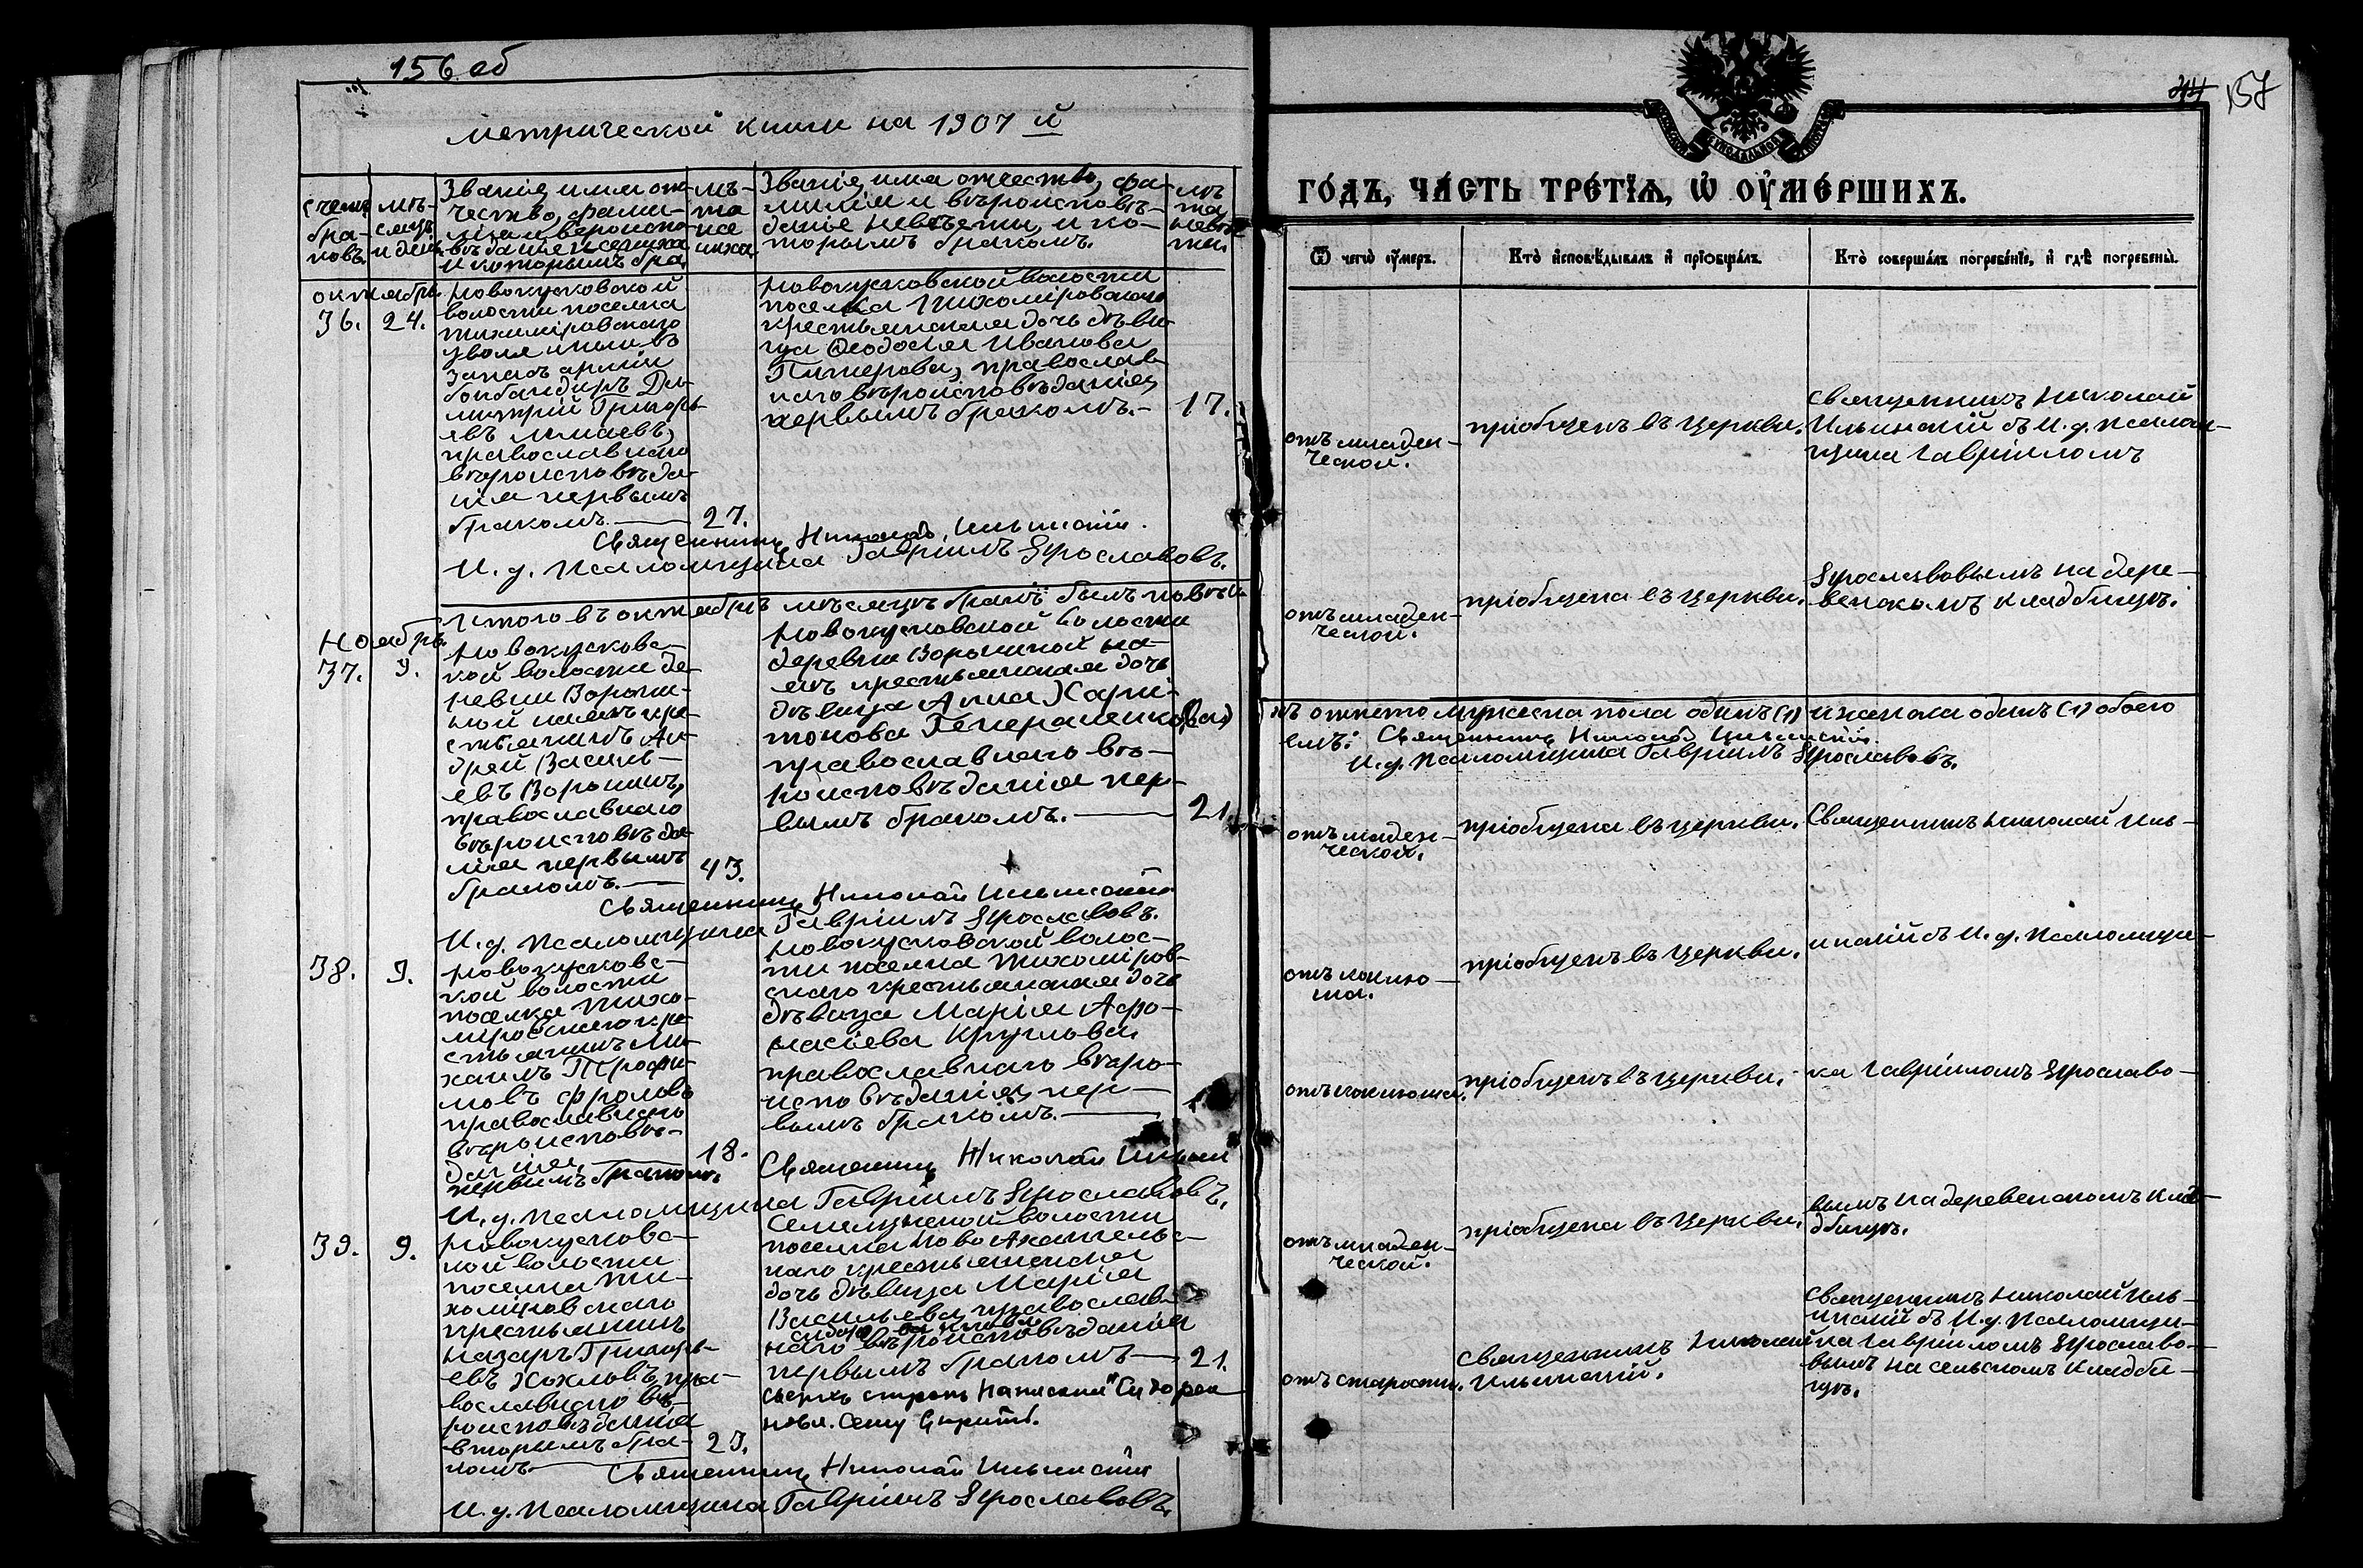 156 об
метрической книги на 1907 й
Счетъ бра-
ковъ.
Мѣ-
сяцъ
и день.
Званіе, имя от-
чество, фами-
лія и вѣроиспо-
вѣданіе жениха
и которымъ бра.
лѣ-
та
же
ниха.
Званіе, имя отчество, фа-
милія и вѣроисповѣ-
даніе невѣсты, и ко-
торымъ бракомъ.
лѣ
та
невѣ
сты.
октябрь
36.
24.
Новокусковской
волости поселка
Тихоміровскаго
уволенный въ
запасъ арміи
бомбандиръ Ди-
митрій Григорь-
евъ
православнаго
вѣроисповѣда-
нія первымъ
бракомъ. —
27.
Новокусковской волости
поселка Тихоміровскаго
крестьянская дочь дѣви-
ца Ѳеодосія Иванова
православ-
наго вѣроисповѣданія,
первымъ бракомъ. –
17.
Священникъ Николай Ильинскій.
И. д. Псаломщика Гавріилъ Ярославовъ.
Итого въ октябрѣ мѣсяцѣ бракъ былъ
Ноябрь
37.
9.
Новокусковс-
кой волости де-
ревни Ворони-
ной кре-
стьянинъ Ан-
дрей Василь-
евъ Воронинъ,
православнаго
вѣроисповѣда-
нія первымъ
бракомъ. —
43.
Новокусковской волости
деревни Ворониной
крестьянская дочь
дѣвица Анна Хари-
тонова
православнаго вѣ-
роисповѣданія пер-
вымъ бракомъ. —
21.
Священникъ Николай Ильинскій
И. д. Псаломщика Гавріилъ Ярославовъ.
38.
9.
Новокусковс-
кой волости
поселка Тихо-
міровскаго кре-
стьянинъ Ми-
хаилъ Трофи-
мовъ Фроловъ
православнаго
вѣроисповѣ-
данія,
первымъ бракомъ.
18.
Новокусковской волос-
ти поселка Тихоміров-
скаго крестьянская дочь
дѣвица Марія Афо-
насіева Круглова
православнаго вѣро-
исповѣданія, пер-
вымъ бракомъ. —
Священникъ Николай
И. д. Псаломщика Гавріилъ Ярославовъ.
39.
9.
Новокусковс-
кой волости
поселка Ти-
хоміровскаго
крестьянинъ
Назаръ Григорь-
евъ Хохловъ, пра-
вославнаго вѣ-
роисповѣданія
вторымъ бра-
комъ. —
23.
Семилужной волости
поселка Ново Архангельс-
каго крестьянская
дочь дѣвица Марія
Васильева, православ-
наго вѣроисповѣданія
первымъ бракомъ —
21.
сверхъ строкъ написанный "Сидорен
кова. Сему
Священникъ Николай Ильинскій
И. д. Псаломщика Гавріилъ Ярославовъ,
157
ГОДЪ, ЧАСТЬ ТРЕТІѦ, Ѡ ОУМЕРШИХЪ.
Ѿ чегѡ оумеръ.
Кто исповѣдывалъ и пріобщалъ.
Кто совершалъ погребеніе, и гдѣ погребены.
отъ младен-
ческой.
пріобщенъ въ Церкви.
Священникъ Николай
Ильинскій съ И. д. Псалом-
щика Гавріиломъ
отъ младен-
ческой.
пріобщена въ Церкви.
Ярославовымъ на дере-
венскомъ кладбищѣ.
мужеска пола одинъ (1) и женска одинъ (1) обоего
Священникъ Николай Ильинскій.
И. д. Псаломщика Гавріилъ Ярославовъ.
отъ младен-
ческой.
пріобщена въ Церкви.
Священникъ Николай Иль-
отъ коклю-
ша.
пріобщенъ въ Церкви.
инскій съ И. д. Псаломщи-
отъ коклюша.
пріобщенъ въ Церкви.
ка Гавріиломъ Ярославо-
отъ младен-
ческой.
пріобщена въ Церкви.
вымъ на деревенскомъ клад-
бищѣ.
отъ старости.
Священникъ Николай
Ильинскій.
Священникъ Николай Иль-
инскій съ И. д. Псаломщи-
ка Гавріиломъ Ярославо-
вымъ на сельскомъ кладби-
щѣ.